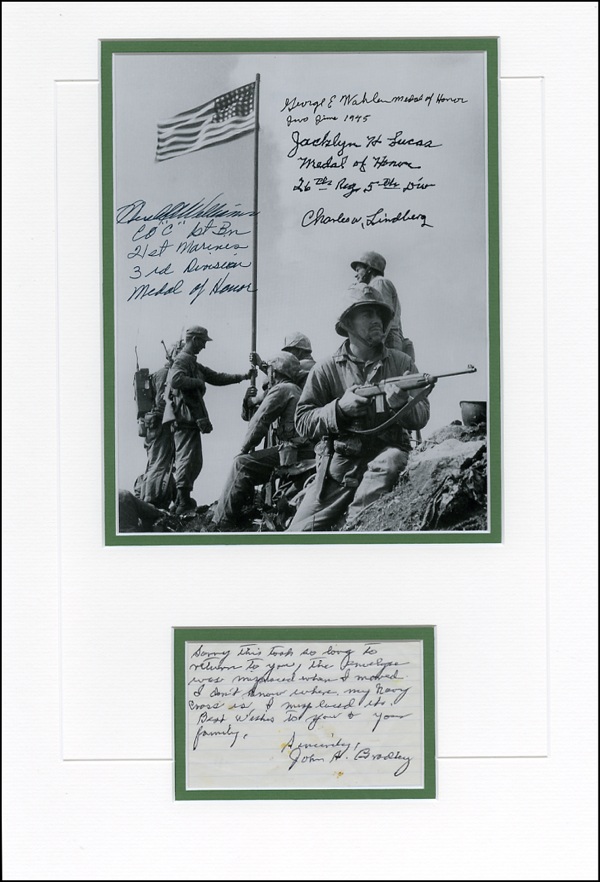 George E Wahlen Medal of Honor
Iwo Jima 1945
Jacklyn H Lucas
Medal of Honor
26th Reg, 5th Div
Charles W, Lindberg
Williams
CO "C" 1st Bn
21st Marines
3rd Division
Medal of Honor
Sorry this took so long to
return to you, the envelope
was misplaced when I moved.
I don't know where my Navy
Cross is, I misplaced it.
Best Wishes to you & your
family.
Sincerely,
John H. Bradley